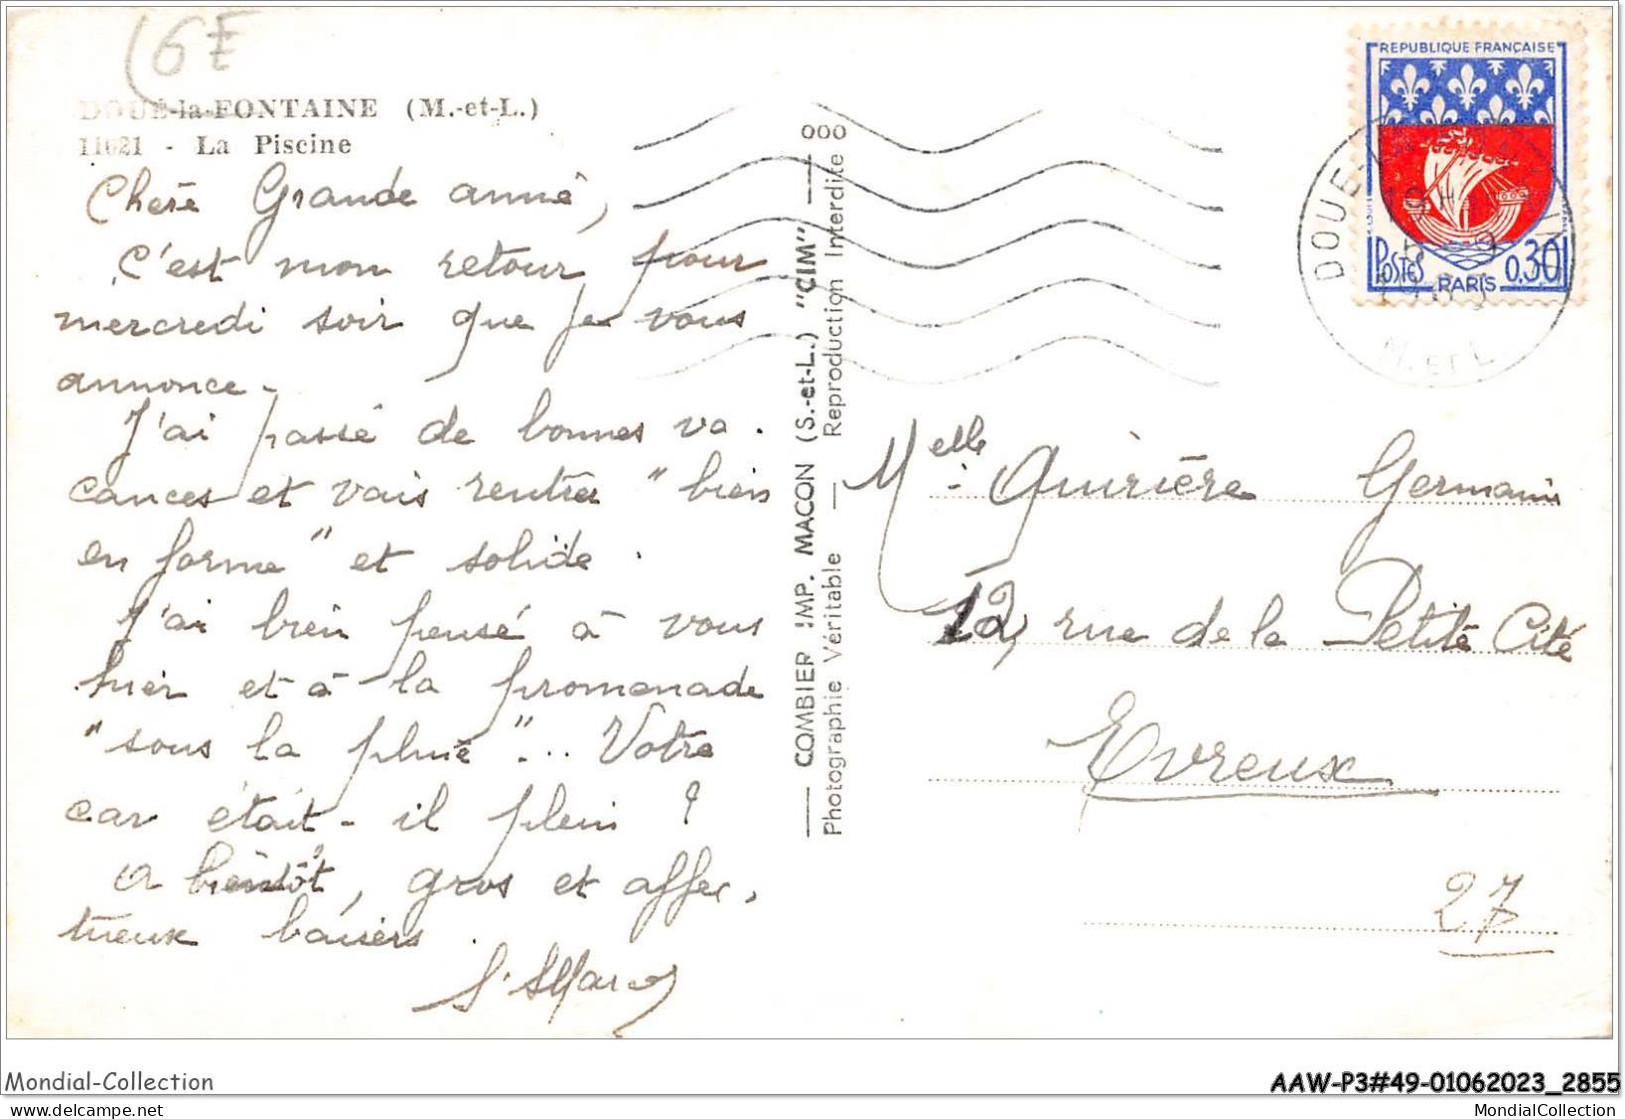 6E
DOUÉ-la-FONTAINE (M.-et-L.)
11021 - La Piscine
Chère Grande amie,
C'est mon retour pour
mercredi soir que je vous
annonce -
J'ai passé de bonnes va.
cances et vais rentrer "bien
en forme" et solide.
J'ai bien pensé à vous
hier et à la promenade
"sous la pluie"... Votre
car était-il plein ?
A bientôt, gros et affec,
tueux baisers.
COMBIER IMP. MACON (S.-et-L.) "CIM"
Photographie Véritable — Reproduction Interdite
000
REPUBLIQUE FRANÇAISE
POSTES
0.30
PARIS
DOUE-LA-FONTAINE
19H
5-9
M. ET L.
Melle Guirière Germaine
12, rue de la Petite Cité
Evreux
27
Mondial-Collection
AAW-P3#49-01062023_2855
delcampe.net
MondialCollection